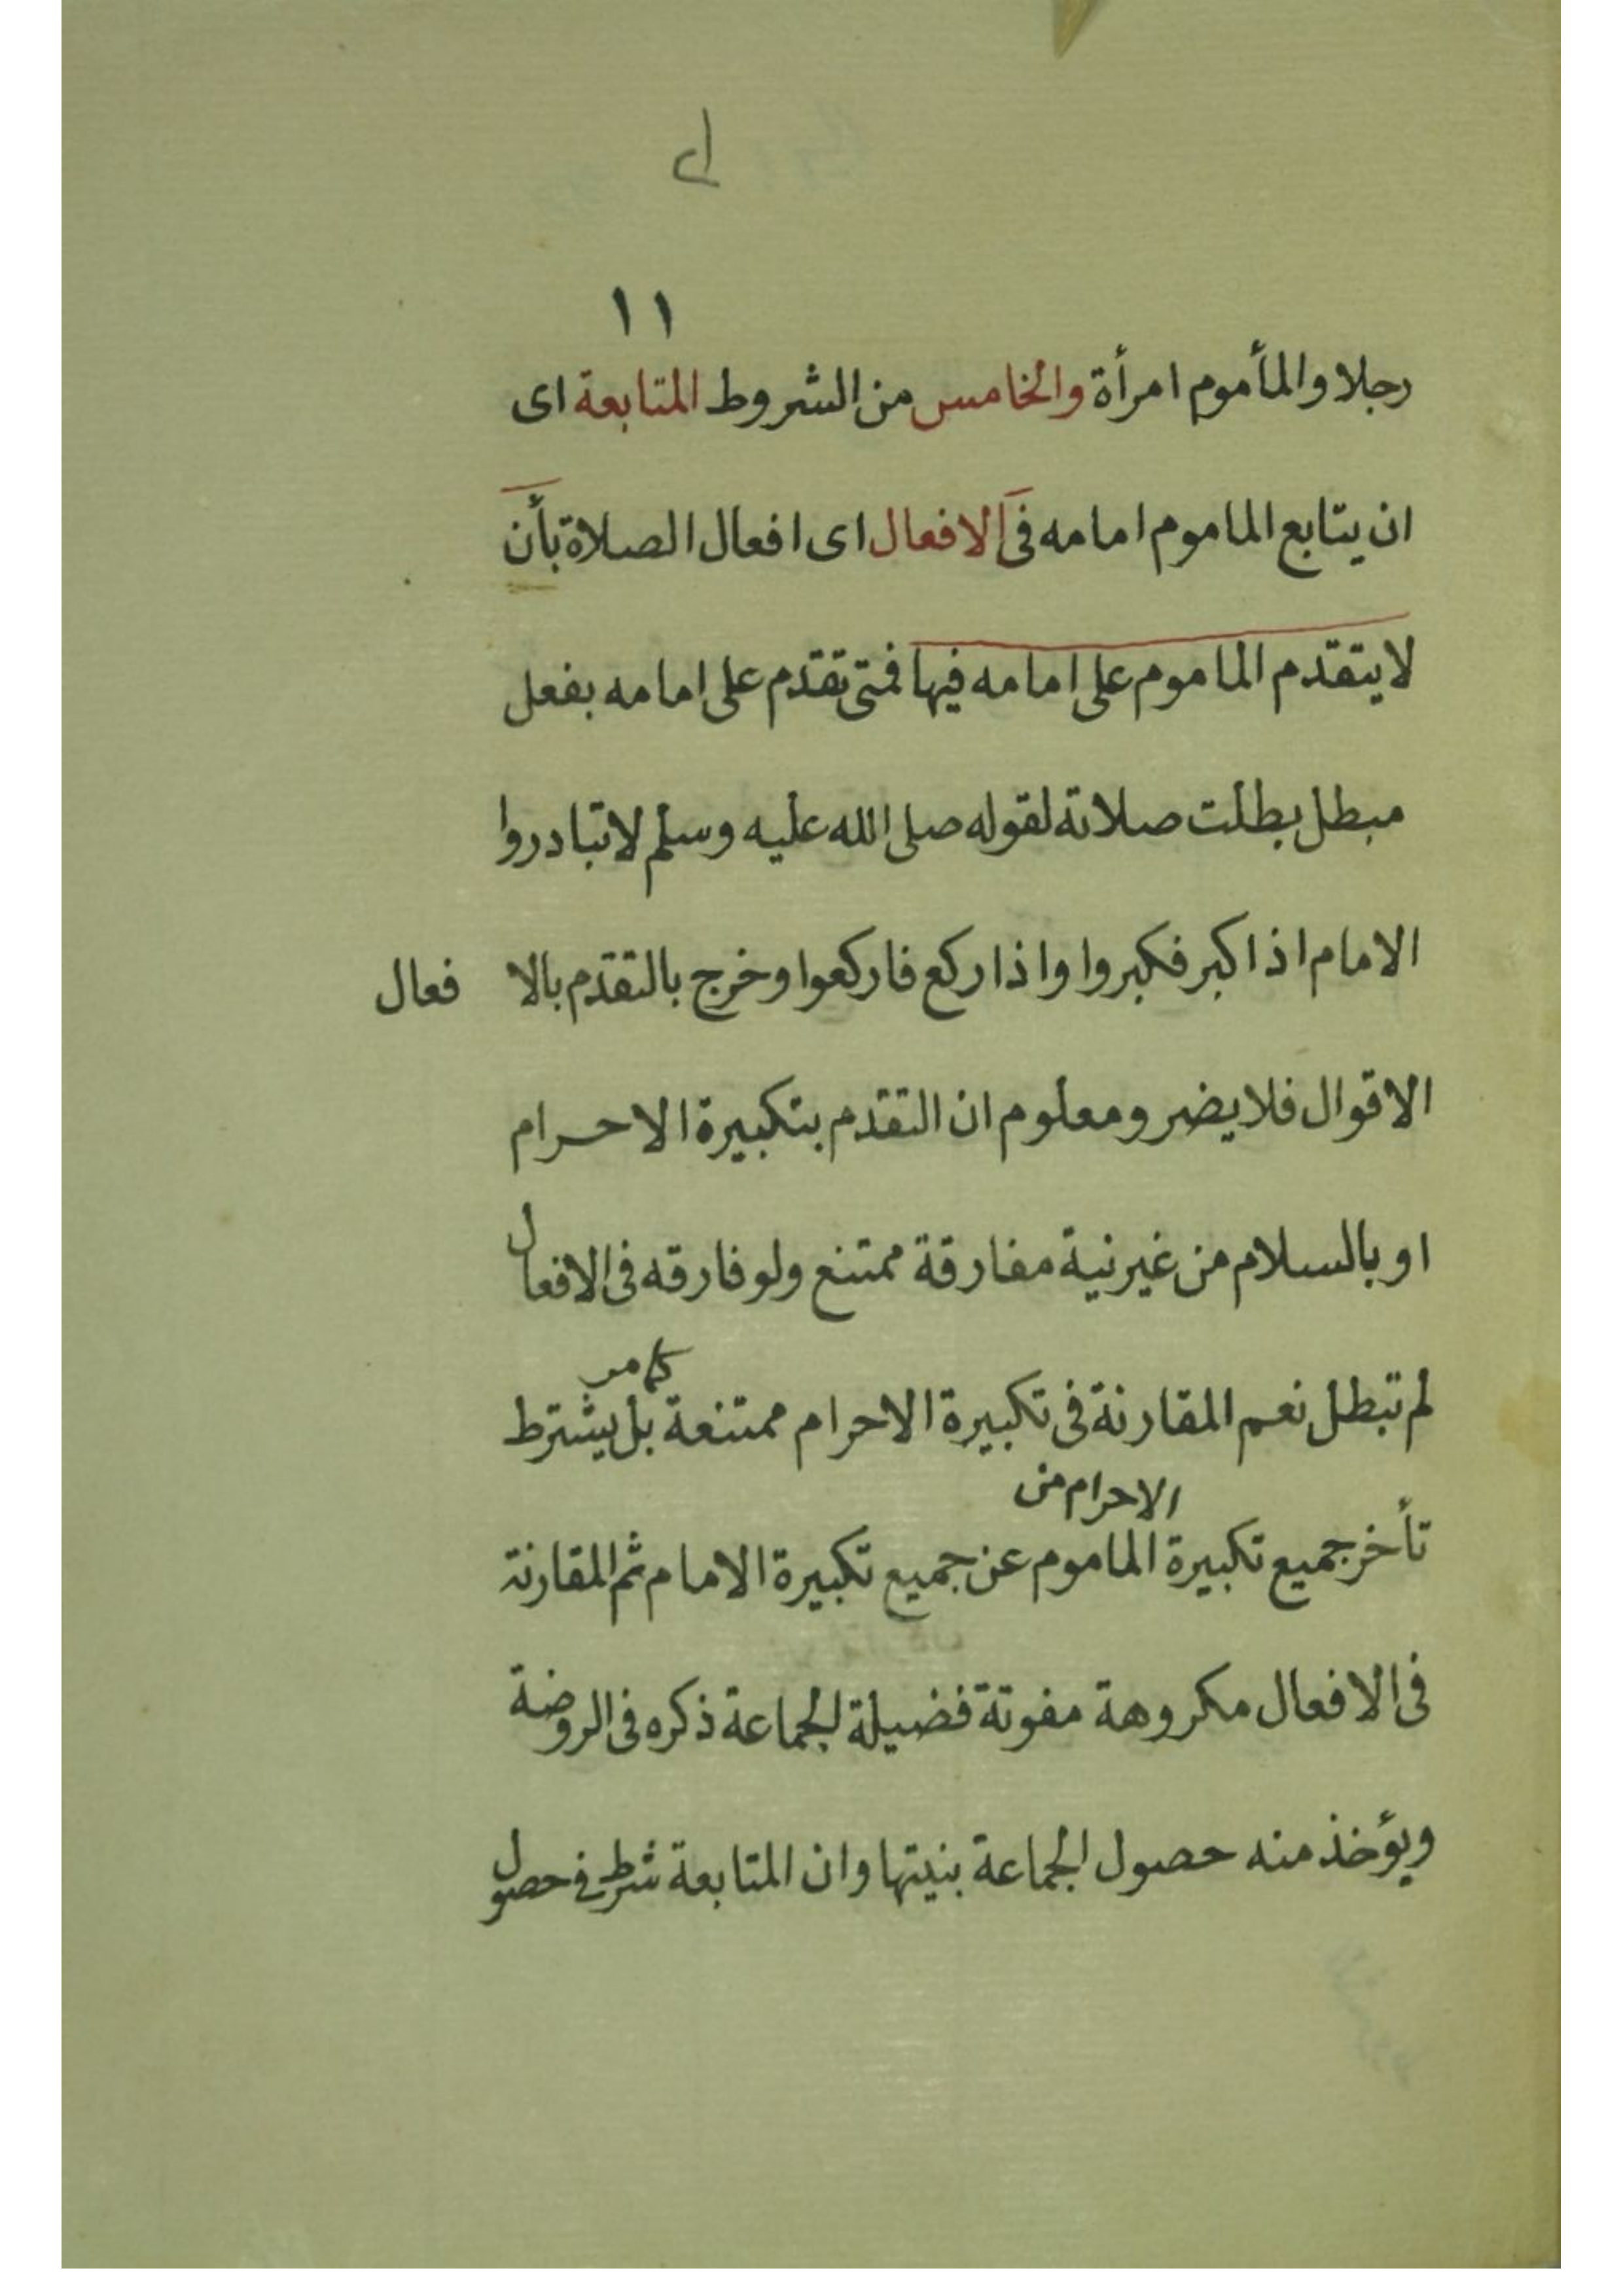 ١١
رجلا والمأموم امرأة والخامس من الشروط المتابعة اى
ان يتابع الماموم امامه فى الافعال اى افعال الصلاة بأن
لا يتقدم الماموم على امامه فيها فمتى تقدم على امامه بفعل
مبطل بطلت صلاته لقوله صلى الله عليه وسلم لا تبادروا
الامام اذا كبر فكبروا واذا ركع فاركعوا وخرج بالتقدم بالا فعال
الاقوال فلا يضر ومعلوم ان التقدم بتكبيرة الاحرام
او بالسلام من غير نية مفارقة ممتنع ولو فارقه فى الافعال
كما مر
لم تبطل نعم المقارنة فى تكبيرة الاحرام ممتنعة بل يشترط
الاحرام من
تأخر جميع تكبيرة الماموم عن جميع تكبيرة الامام ثم المقارنة
فى الافعال مكروهة مفوتة فضيلة الجماعة ذكره فى الروضة
ويؤخذ منه حصول الجماعة بنيتها وان المتابعة شرط في حصول